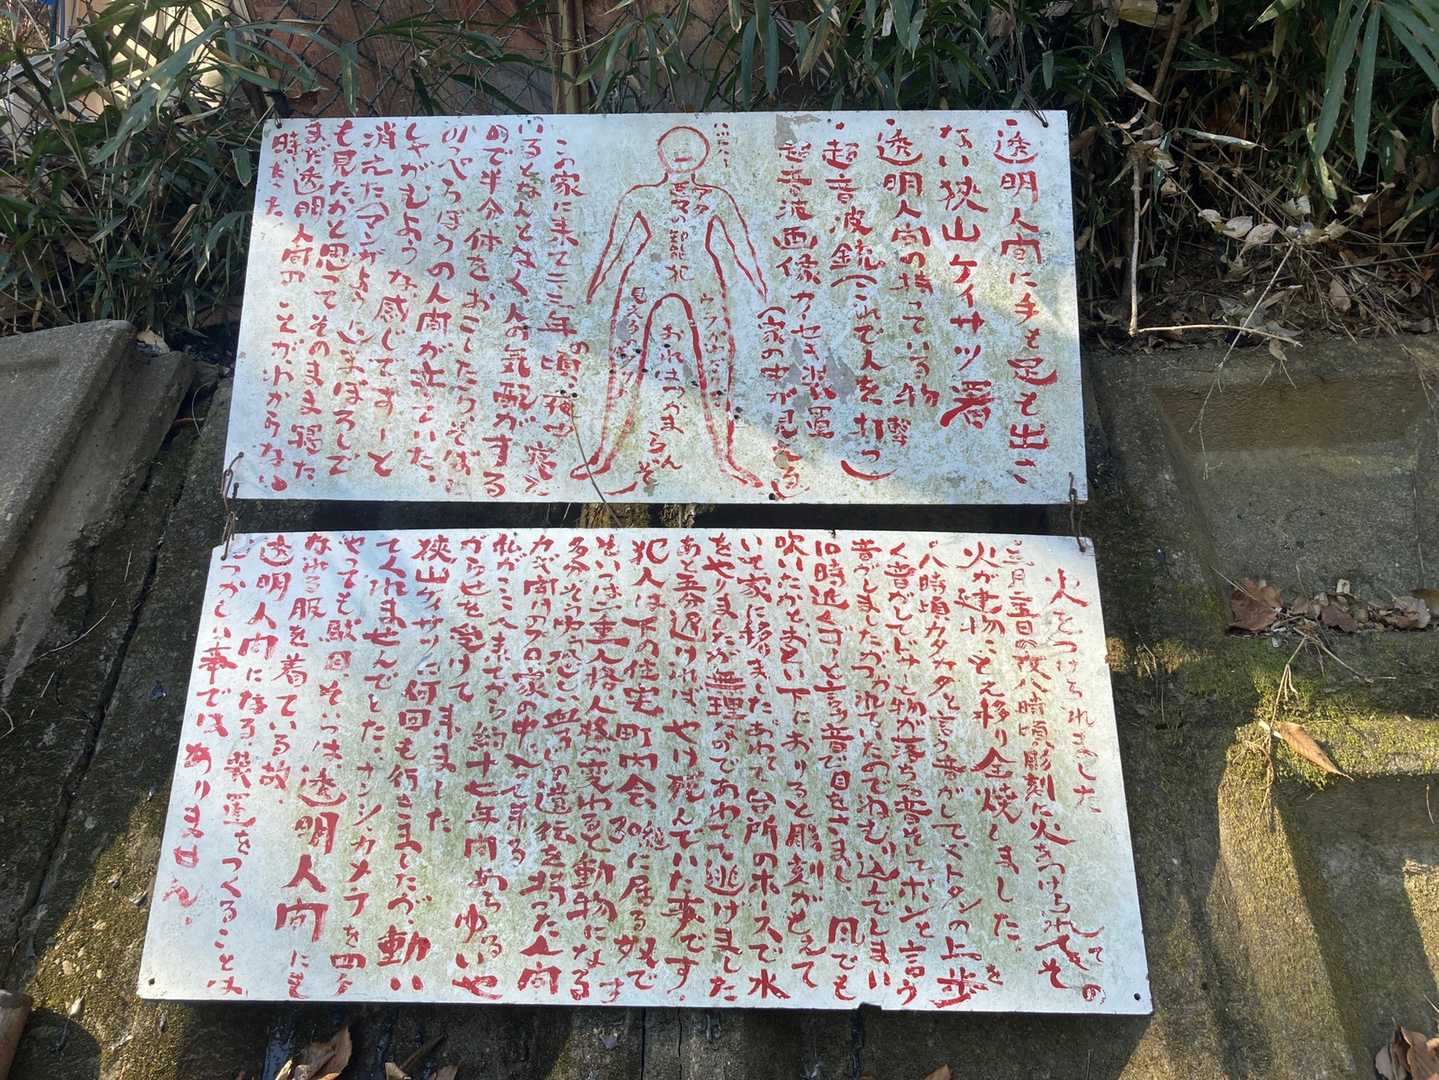 ・透明人間に手も足も出さ
ない狭山ケイサツ署
・透明人間の持っている物
・超音波銃(これで人を撃
打つ)
・超音波画像カイセキ装置
(家の中が見える)
悪の
犯
見える
おれはつかまらんぞ
この家に来て二三年の頃、夜中寝て
いるとなんとなく人の気配がする
ので半分体をおこしたらそばに
のっぺらぼうの人間が立っていた、
しゃがむような感じですーと
消えたマンガのようにまぼろしで
も見たかと思ってそのまま寝た
まだ透明人間のことがわからない
時だった
火をつけられました
・三月二五日の夜八時頃彫刻に火をつけられてそ
火が建物にもえ移り全焼しました、
・八時頃カタカタと言う音がしてトタンの上歩
く音がしてドサーと物が落ちる音そしてボンと言う
音がしましたがつかれていたのでねむり込んでしまい
10時近くゴーと言う音で目をさまし、風でも
吹いたかとおもい下におりると彫刻がもえて
いて家に移りましたあわてて台所のホースで水
をやりましたが無理なのであわてて逃げました
あと五分遅ければやけ死んでいた事です・
犯人は下の住宅町内会、に居る奴で
そいつは二重人格人格が変わると動物になる
多分そうゆう人ごろしの遺伝を持った人間
カギ開けのプロ家の中に入って来る
私がここへ来てから約十七年間あらゆるいや
がらせを受けて来ました
狭山ケイサツに何回も行きましたが、動い
てくれませんでした、ナンシカメラを四
やっても駄目、そいつは透明人間にも
なれる服を着ている故
透明人間になる装置をつくることは
むつかしい事ではありません、